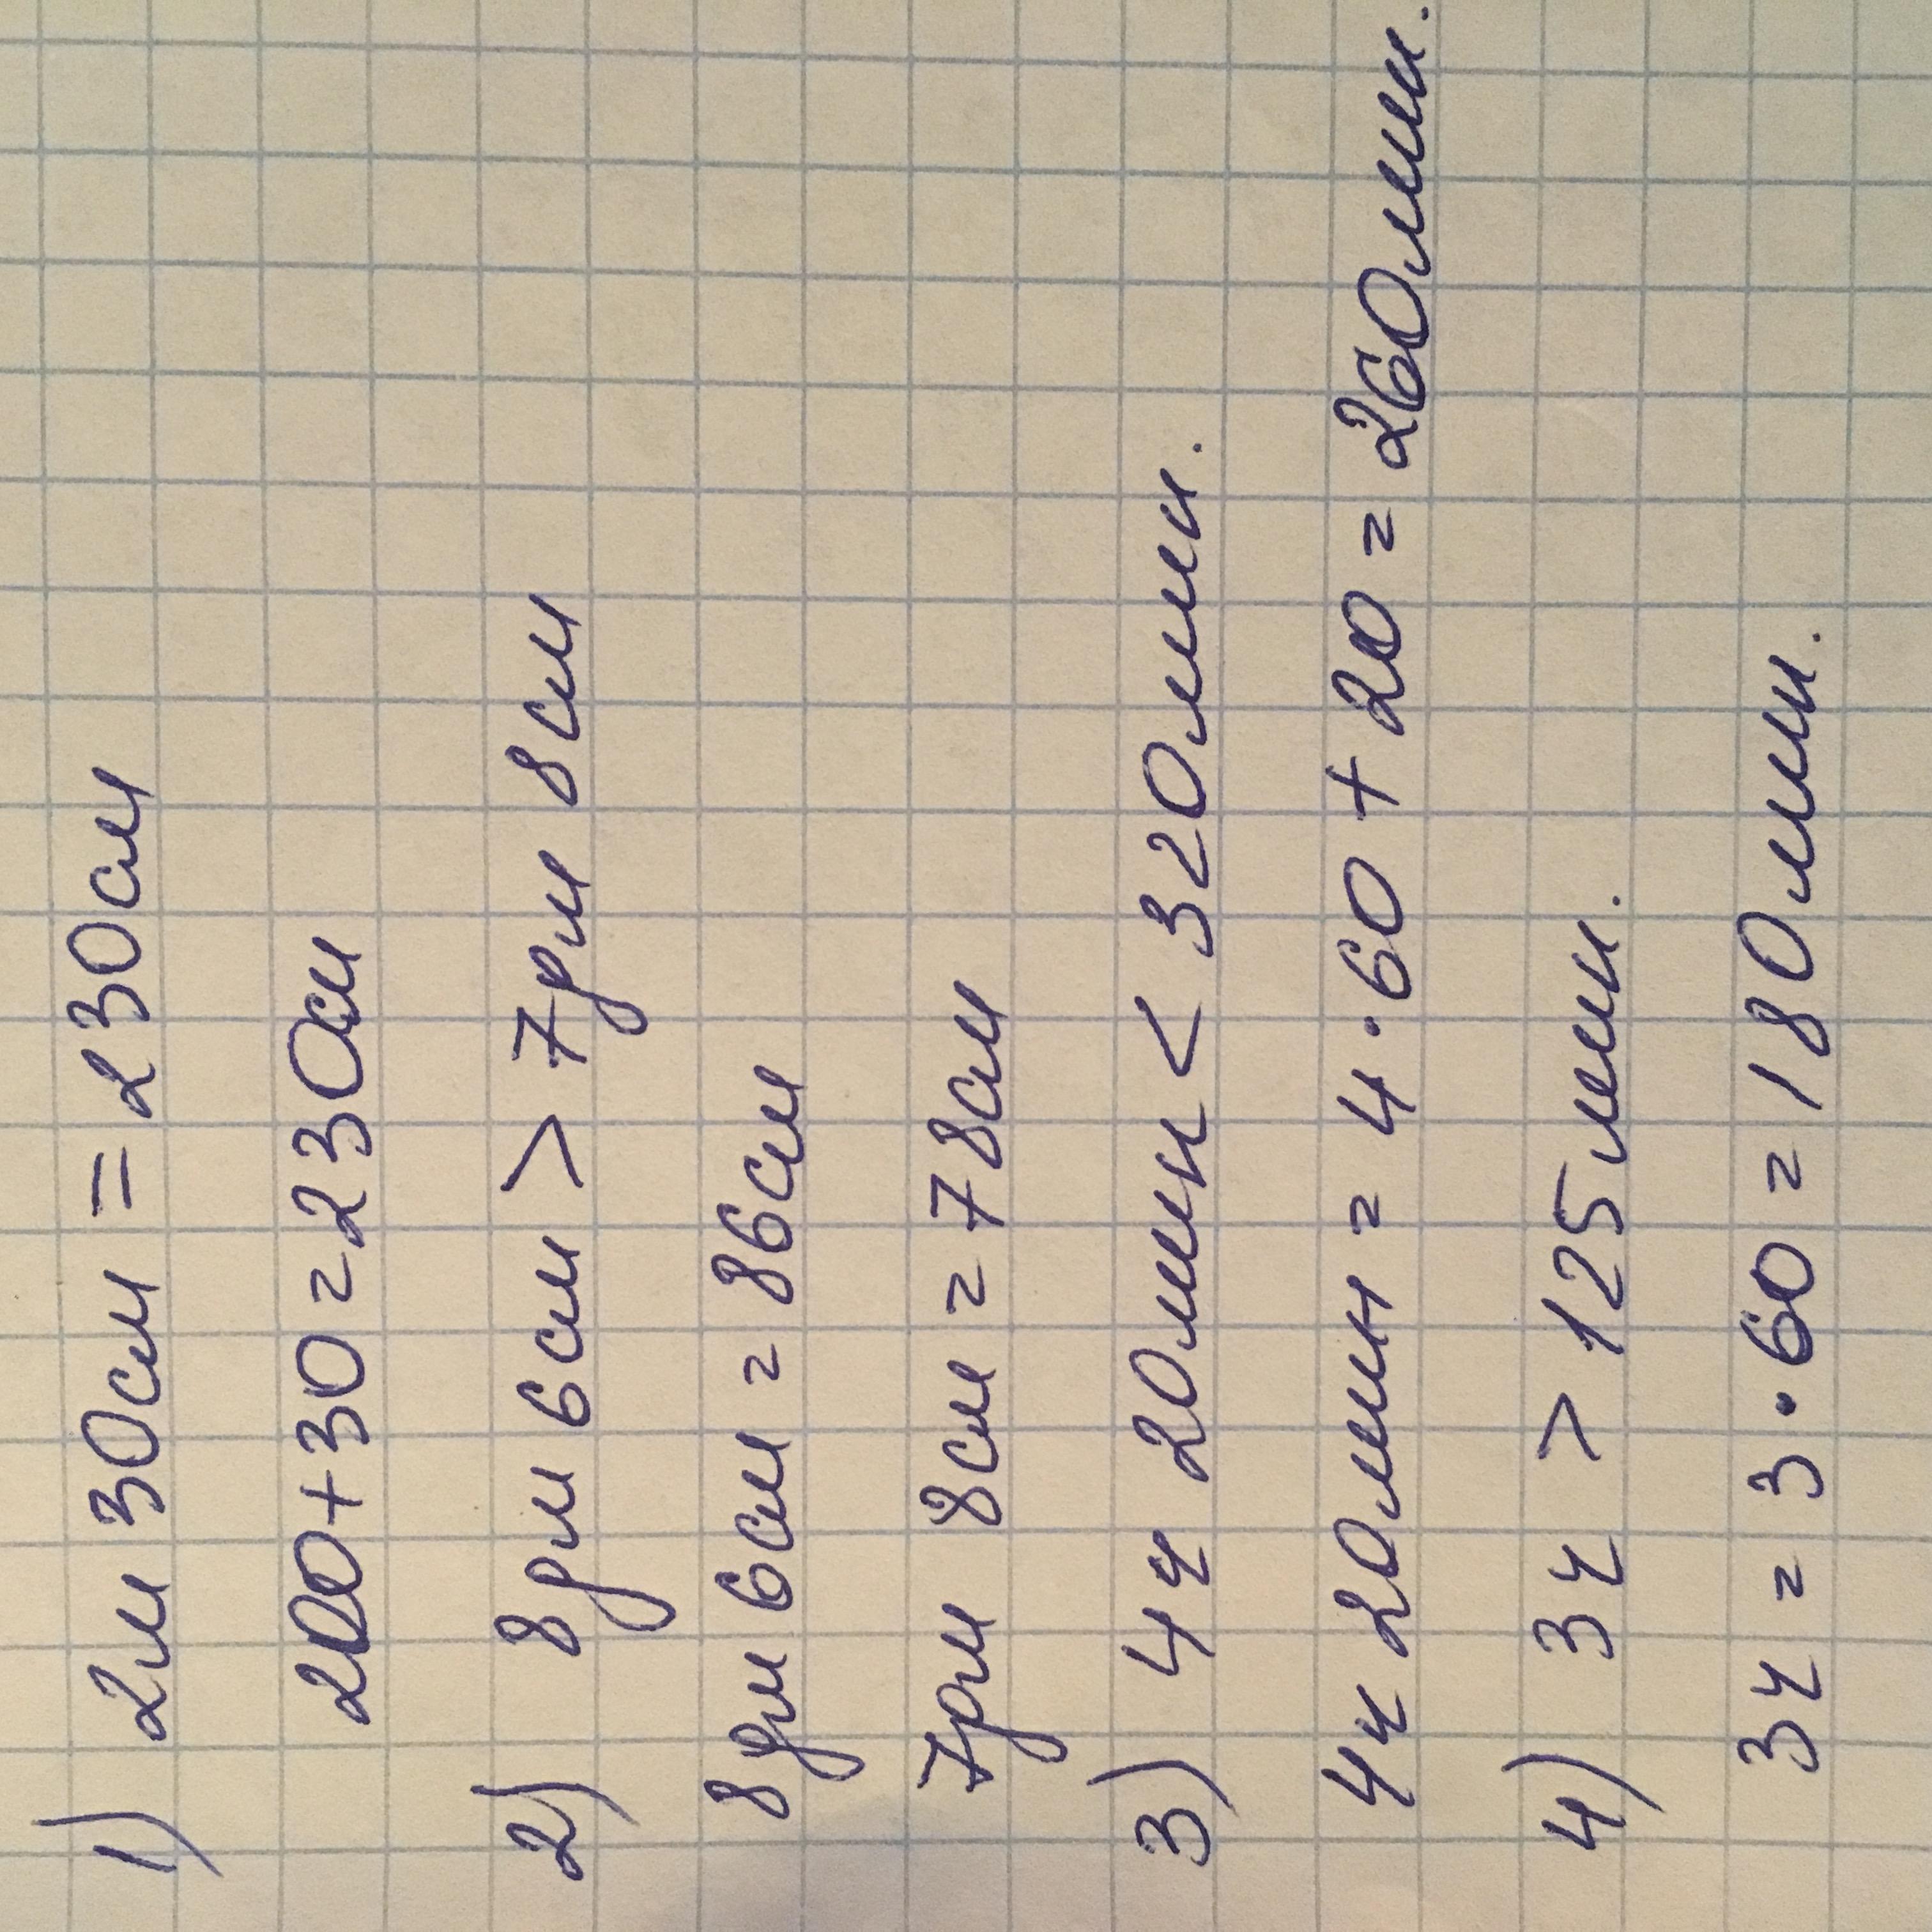 1) 2м 30см = 230см
200+30=230см
2) 8дм 6см > 7дм 8см
8дм 6см = 86см
7дм 8см = 78см
3) 4ч 20мин < 320мин.
4ч 20мин = 4·60+20=260мин.
4) 3ч > 125мин.
3ч = 3·60=180мин.